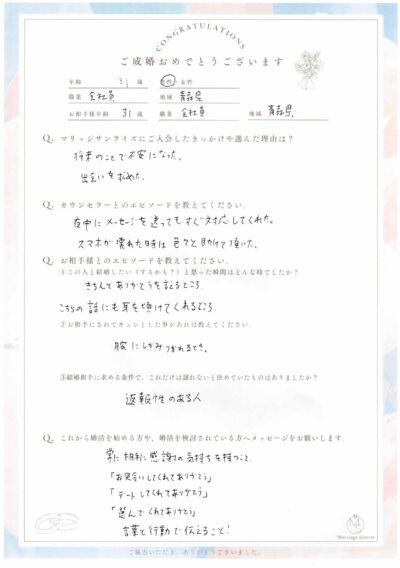 CONGRATULATIONS
ご成婚おめでとうございます
年齢 31 歳 男性・女性
職業 会社員 地域 青森県
お相手様年齢 31 歳 職業 会社員 地域 青森県
Q. マリッジサンライズにご入会したきっかけや選んだ理由は？
将来のことで不安になった。
出会いを求めた。
Q. カウンセラーとのエピソードを教えてください。
夜中にメッセージを送ってもすぐ対応してくれた。
スマホが壊れた時は色々と助けて頂いた。
Q. お相手様とのエピソードを教えてください。
①この人と結婚したい（するかも？）と思った瞬間はどんな時でしたか？
きちんとありがとうを言えるところ。
こちらの話にも耳を傾けてくれるところ
②お相手にされてキュンとした事があれば教えてください。
腕にしがみつかれるとき。
③結婚相手に求める条件で、これだけは譲れないと決めていたものはありましたか？
返報性のある人
Q. これから婚活を始める方や、婚活を検討されている方へメッセージをお願いします。
常に相手に感謝の気持ちを持つこと。
「お見合いしてくれてありがとう」
「デートしてくれてありがとう」
「選んでくれてありがとう」
言葉と行動で伝えること！
Marriage Sunrise
ご協力いただき、ありがとうございました。